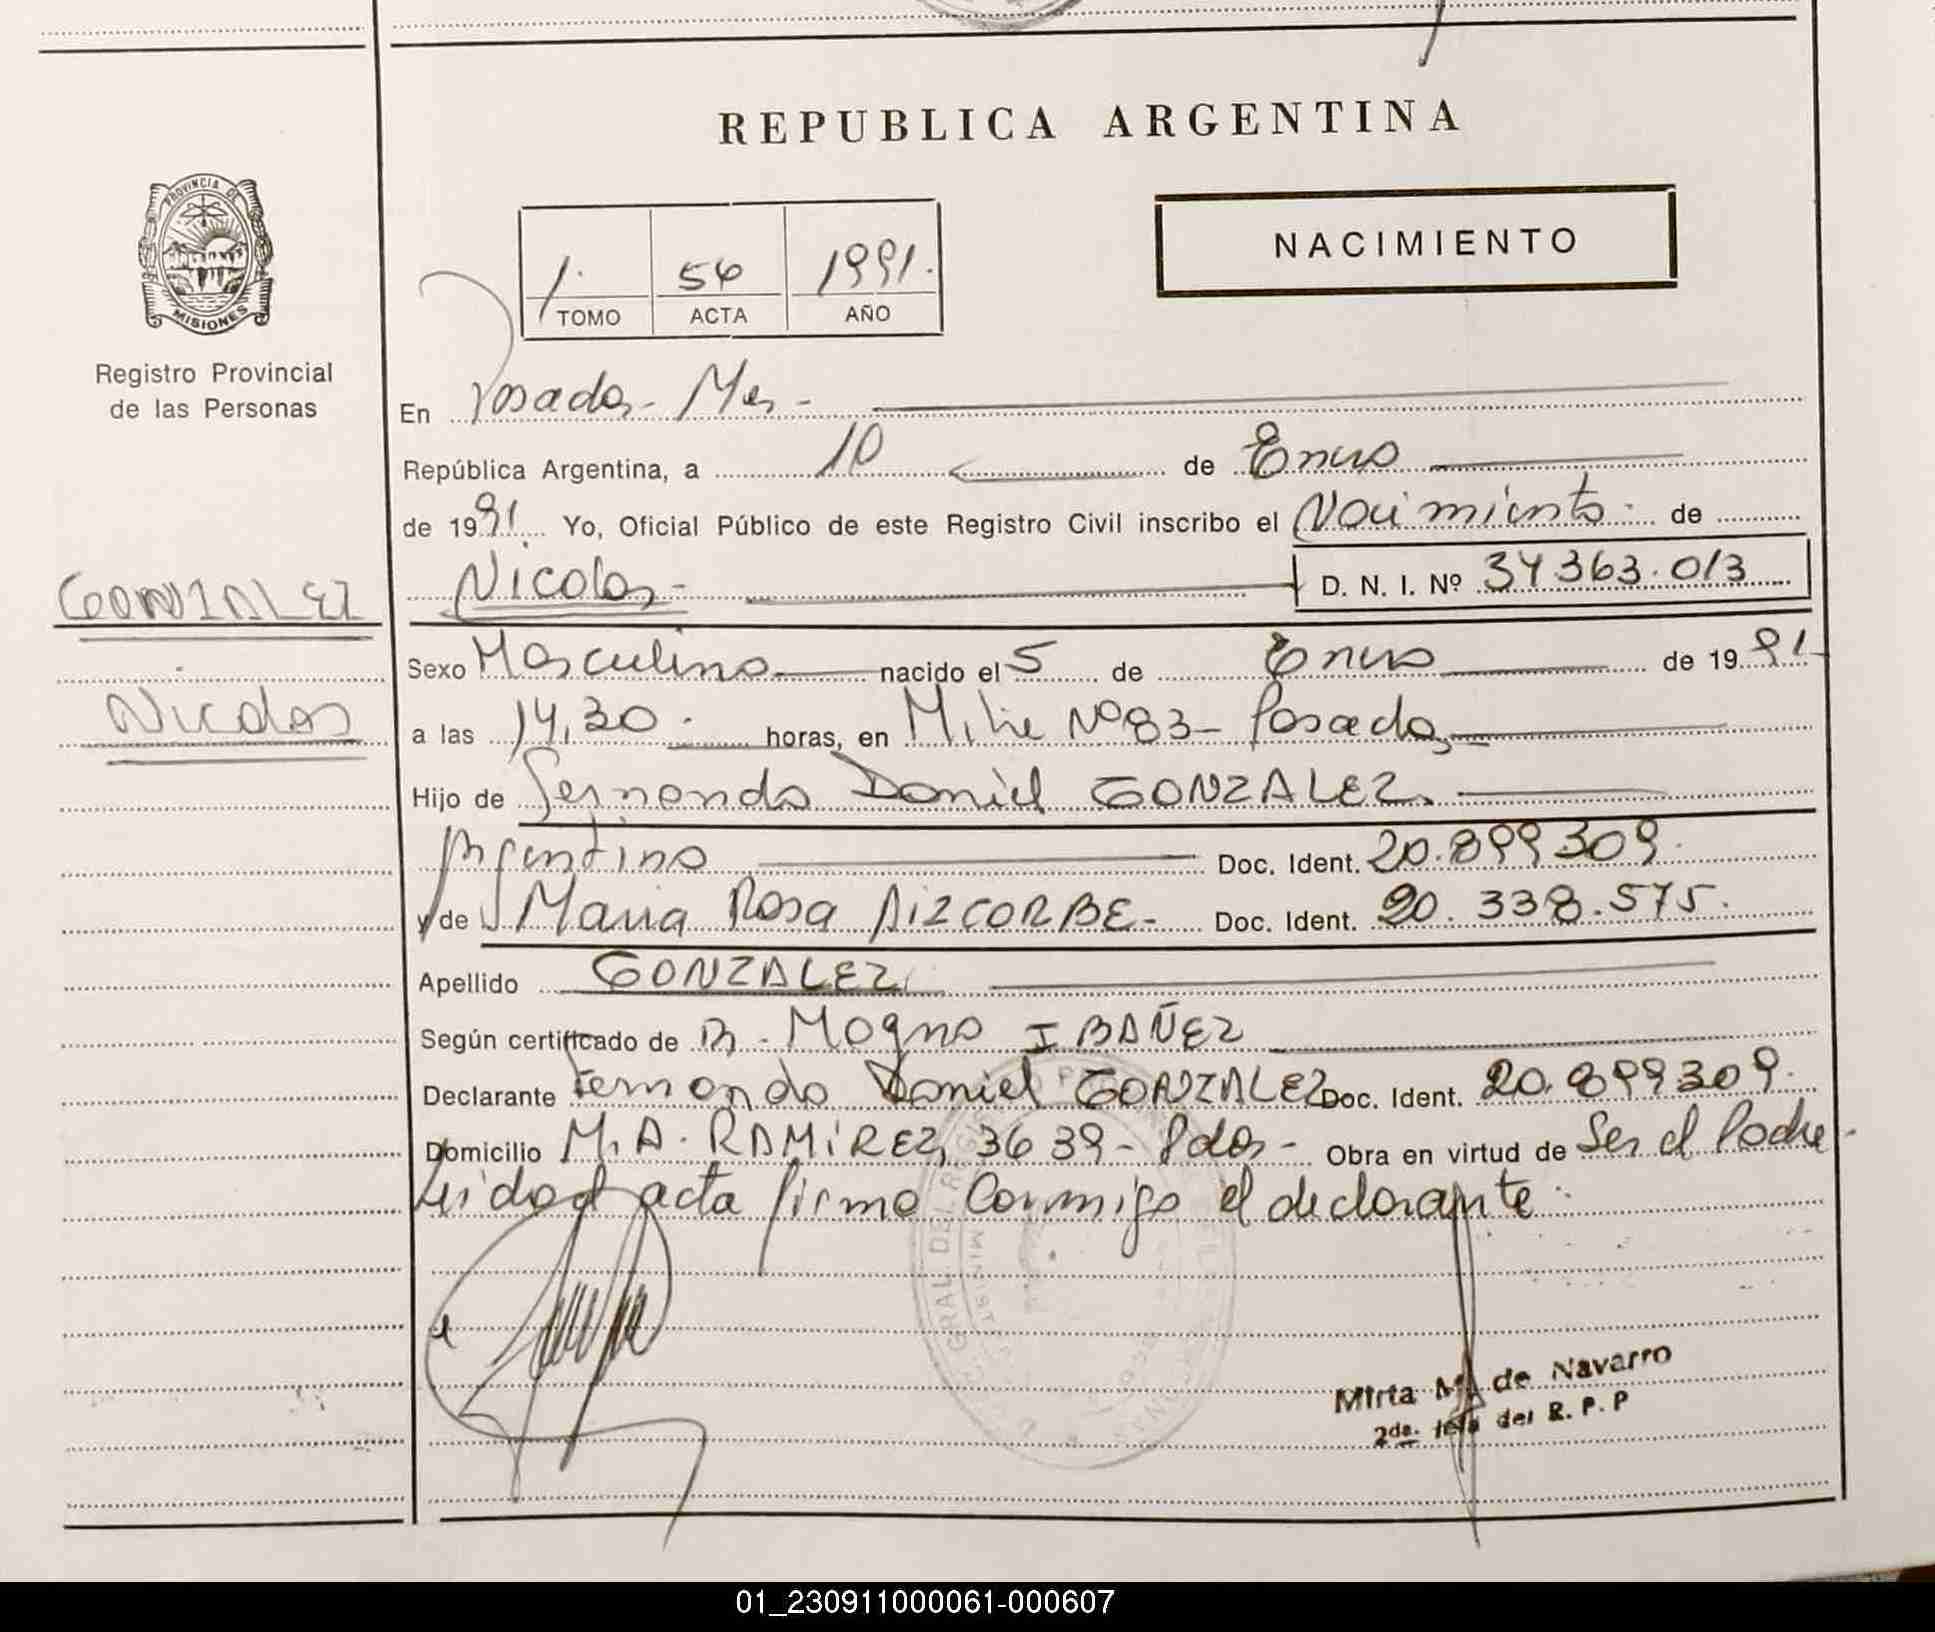 REPUBLICA ARGENTINA
PROVINCIA DE
MISIONES
Registro Provincial
de las Personas
NACIMIENTO
1. 56 1991.
TOMO ACTA AÑO
En Posadas- Mnes-
República Argentina, a 10 de Enero
de 1991 Yo, Oficial Público de este Registro Civil inscribo el Nacimiento de
Nicolas- D. N. I. Nº 34363.013
GONZALEZ
Sexo Masculino nacido el 5 de Enero de 1991
Nicolas
a las 14,30. horas, en Mitre Nº 83- Posadas,
Hijo de Fernando Daniel GONZALEZ.
Argentino Doc. Ident. 20.899309.
y de Maria Rosa AIZCORBE- Doc. Ident. 20.338.575.
Apellido GONZALEZ
Según certificado de Magno IBAÑEZ
Declarante Fernando Daniel GONZALEZ Doc. Ident. 20.899309.
Domicilio M.A. RAMIREZ, 3639- Pdas- Obra en virtud de Ser el Padre-
Leida el acta firma Conmigo el declarante.
Mirta M. de Navarro
2da. Jefa del R. P. P
01_230911000061-000607